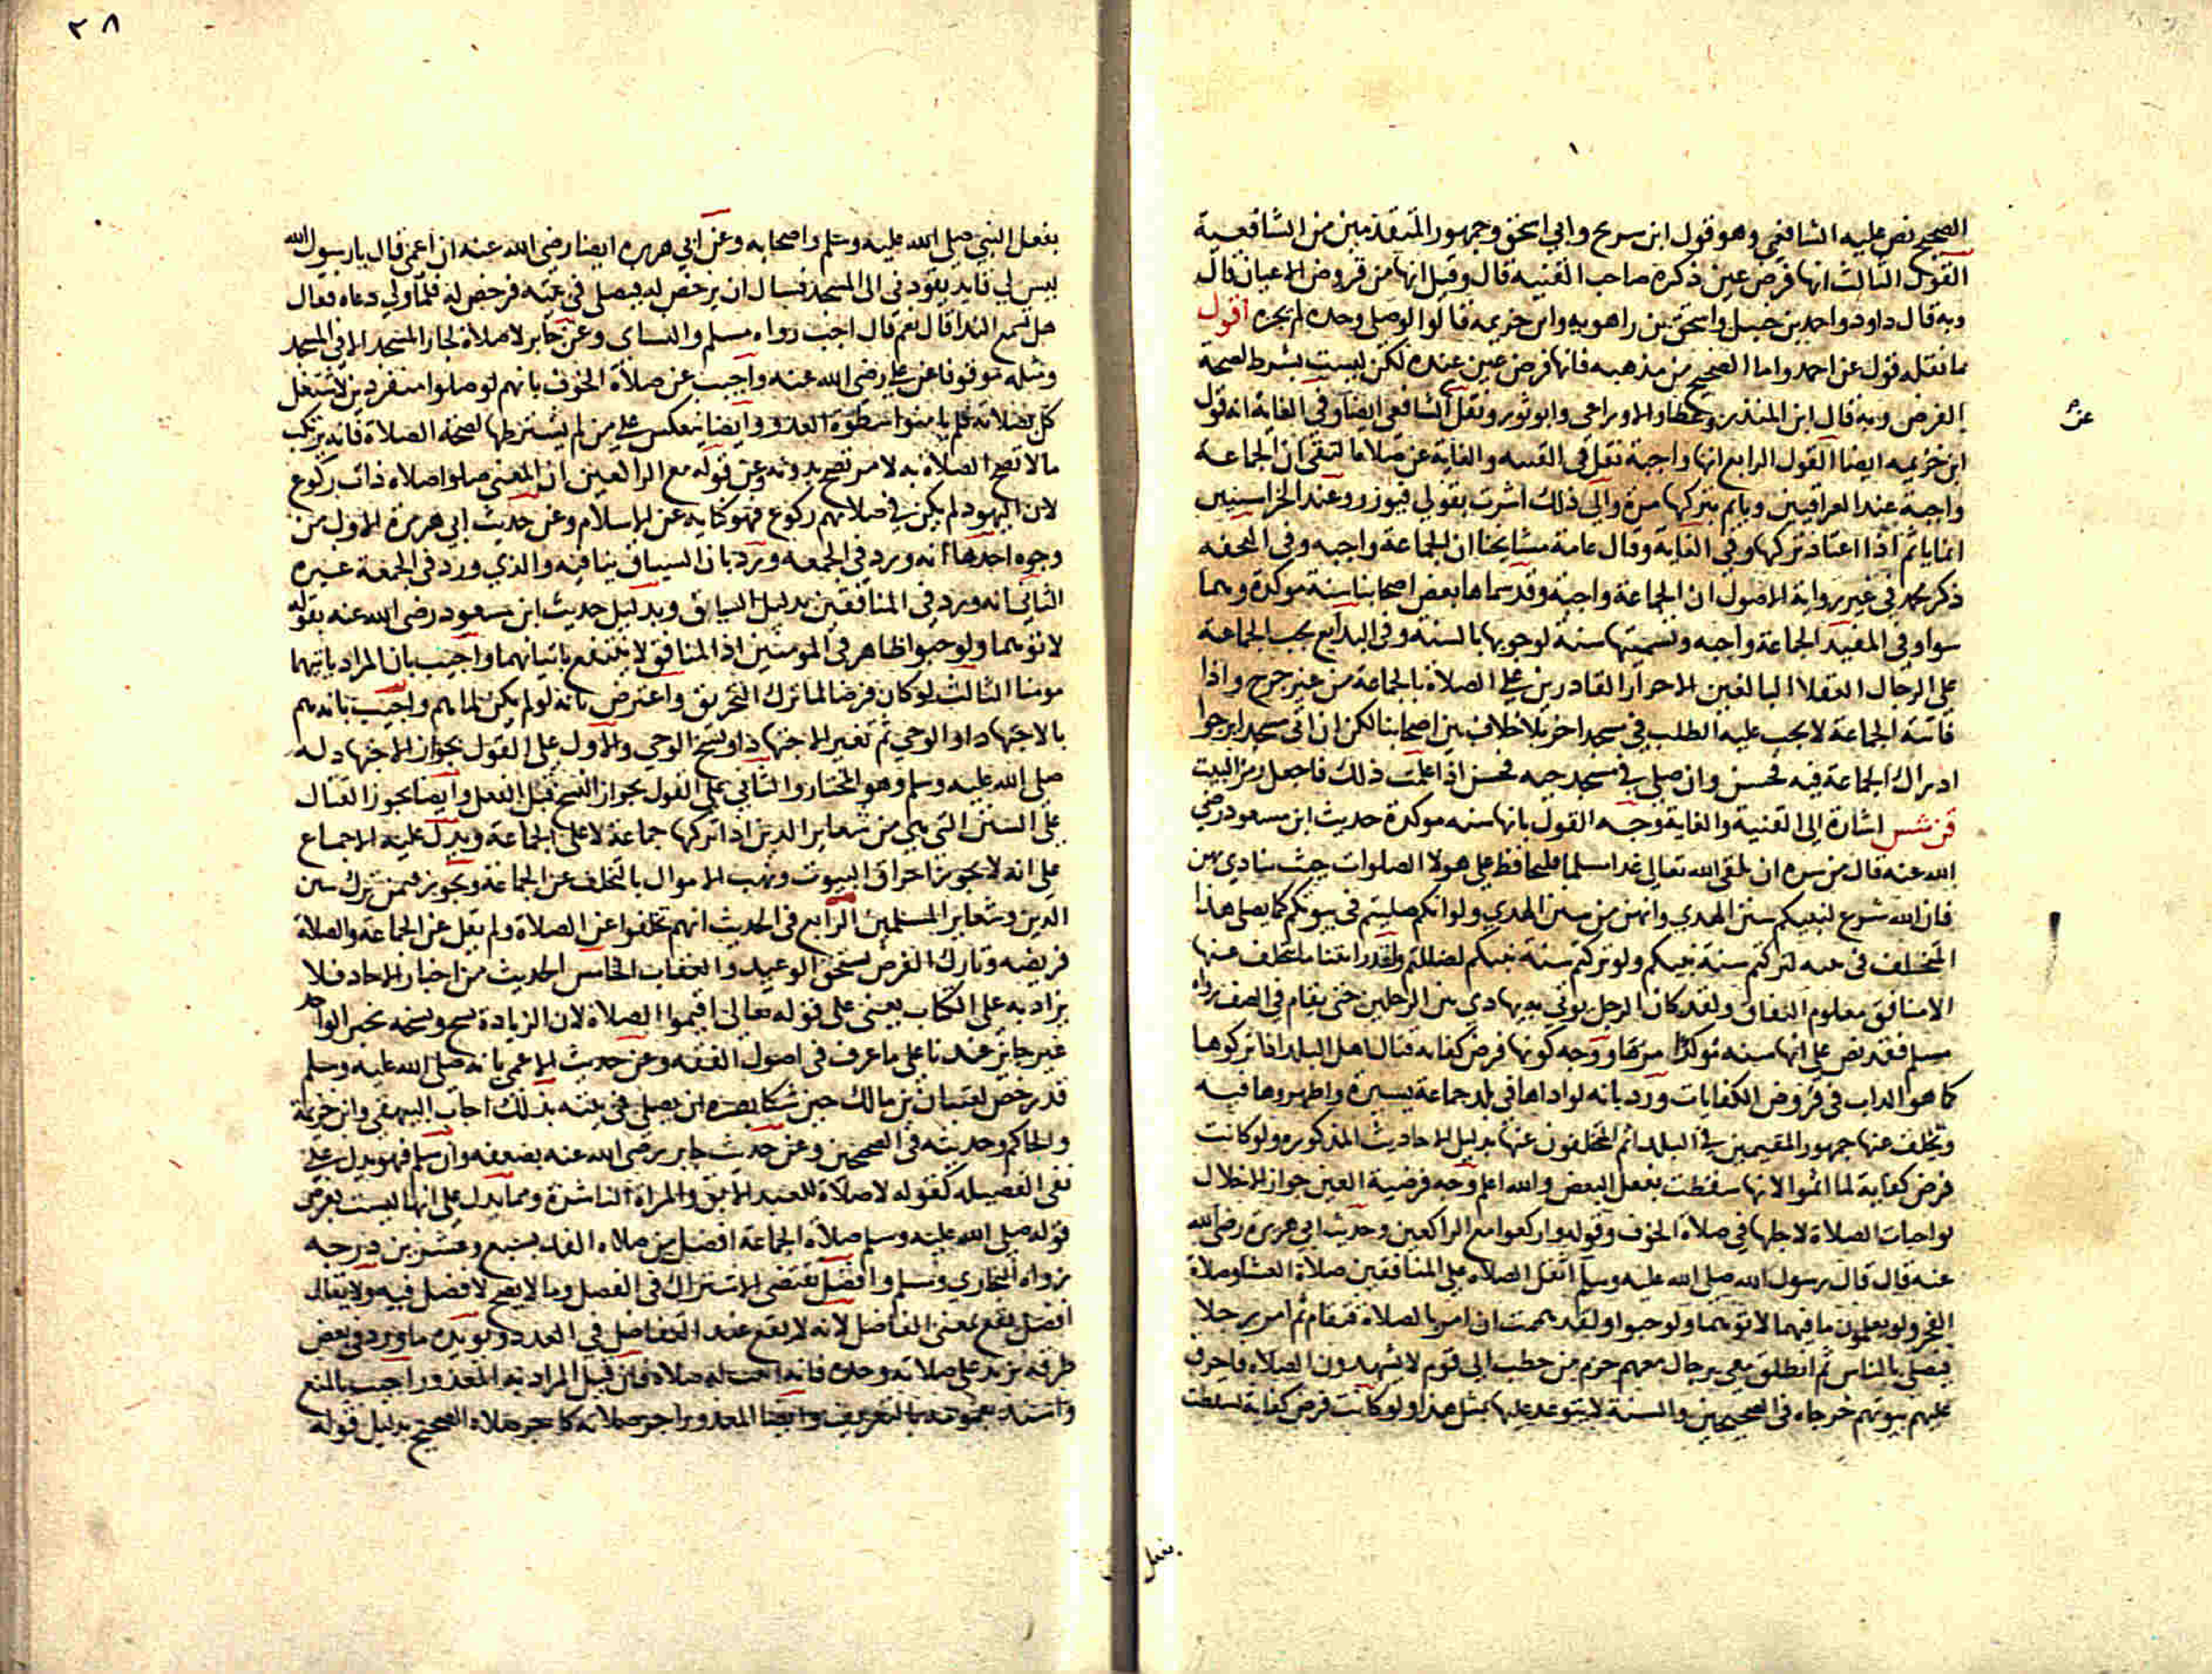 الصحيح نص عليه الشافعي وهو قول ابن سريج وابي اسحق وجمهور المتقدمين من الشافعية
القول الثالث انها فرض عين ذكره صاحب القنية قال وقيل انها من فروض الاعيان قال
وبه قال داود واحمد بن حنبل واسحق بن راهويه وابن خزيمه قالوا لو صلى وحده لم يجزه اقول
ما نقله قول عن احمد واما الصحيح من مذهبه فانها فرض عين عنده لكن ليست بشرط لصحة
الفرض وبه قال ابن المنذر وعطا والاوزاعي وابو ثور ونقل الشافعي ايضا وفي الغاية انه قول
عن
ابن خزيمه ايضا القول الرابع انها واجبة نقل في القنيه والغاية عن صلاة البقالي ان الجماعة
واجبة عند العراقيين وياثم بتركها مرة والى ذلك اشرت بقولي فيوزر وعند الخراسنيين
انما ياثم اذا اعتاد تركها وفي الغاية وقال عامة مشايخنا ان الجماعة واجبه وفي التحفه
ذكر محمد في غير رواية الاصول ان الجماعة واجبة وقد سماها بعض اصحابنا سنة موكدة وهما
سوا وفي المفيد الجماعة واجبه وتسميتها سنة لوجوبها بالسنة وفي البدايع تجب الجماعة
على الرجال العقلا البالغين الاحرار القادرين على الصلاة بالجماعة من غير حرج واذا
فاتته الجماعة لا يجب عليه الطلب في مسجد اخر بلا خلاف بين اصحابنا لكن ان اتى مسجدا يرجوا
ادراك الجماعة فيه فحسن وان صلى في مسجد حيه فحسن اذا علمت ذلك فاجعل رمز البيت
قن شس اشارة الى القنية والغاية وجه القول بانها سنه موكدة حديث ابن مسعود رضي
الله عنه قال من سره ان يلقى الله تعالى غدا مسلما فليحافظ على هولا الصلوات حيث ينادى بهن
فان الله شرع لنبيكم سنن الهدي وانهن من سنن الهدي ولو انكم صليتم في بيوتكم كما يصلي هذا
المتخلف في بيته لتركتم سنة نبيكم ولو تركتم سنة نبيكم لضللتم ولقد رايتنا ما يتخلف عنها
الا منافق معلوم النفاق ولقد كان الرجل يوتى به يهادى بين الرجلين حتى يقام في الصف رواه
مسلم فقد نص على انها سنه ووجه كونها فرض كفاية قتال اهل البلد اذا تركوها
كما هو الداب في فروض الكفايات ورد بانه لو اداها في بلد جماعة يسيرة واظهروها فيه
وتخلف عنها جمهور المقيمين في البلد اثم المتخلفون عنها بدليل الاحاديث المذكوره ولو كانت
فرض كفاية لما اثموا لانها سقطت بفعل البعض والله اعلم وجه فرضية العين جواز الاخلال
بواجبات الصلاة لاجلها في صلاة الخوف وقوله واركعوا مع الراكعين وحديث ابي هريرة رضي الله
عنه قال قال رسول الله صلى الله عليه وسلم اثقل الصلاه على المنافقين صلاة العشا وصلاة
الفجر ولو يعلمون ما فيهما لاتوهما ولو حبوا ولقد هممت ان امر بالصلاة فتقام ثم امر رجلا
فيصلي بالناس ثم انطلق معي برجال معهم حزم من حطب الى قوم لا يشهدون الصلاه فاحرق
عليهم بيوتهم خرجاه في الصحيحين والسنة لا يتوعد عليها بمثل هذا ولو كانت فرض كفاية لسقطت
بفعل
٢٨
بفعل النبي صلى الله عليه وسلم واصحابه وعن ابي هريره ايضا رضي الله عنه ان اعمى قال يا رسول الله
ليس لي قايد يقودني الى المسجد فسال ان يرخص له فيصلي في بيته فرخص له فلما ولي دعاه فقال
هل تسمع الندا قال نعم قال اجب رواه مسلم والنساي وعن جابر لا صلاة لجار المسجد الا في المسجد
ومثله موقوفا عن علي رضي الله عنه واجيب عن صلاة الخوف بانهم لو صلوا منفردين لاشتغل
كل بصلاته فلم يامنوا سطوة العدو وايضا ينعكس على من لم يشترطها لصحة الصلاة فانه يرتكب
مالا تصح الصلاة به لامر تصح بدونه وعن قوله مع الراكعين ان المعنى صلوا صلاه ذات ركوع
لان اليهود لم يكن في صلاتهم ركوع فهو كنايه عن الاسلام وعن حديث ابي هريرة الاول من
وجوه احدها انه ورد في الجمعه ورد بان السياق ينافيه والذي ورد في الجمعة غيره
الثاني انه ورد في المنافقين بدليل السياق وبدليل حديث ابن مسعود رضي الله عنه بقوله
لاتوهما ولو حبوا ظاهر في المومنين اذ المنافق لا ينتفع باتيانهما واجيب بان المراد ياتيهما
مومنا الثالث لو كان فرضا لما ترك التحريق واعترض بانه لو لم يكن لما هم واجيب بانه هم
بالاجتهاد او الوحي ثم تغير الاجتهاد او نسخ الوحي والاول على القول بجواز الاجتهاد له
صلى الله عليه وسلم وهو المختار والثاني على القول بجواز النسخ قبل الفعل وايضا يجوز القتال
على السنن التي هي من شعاير الدين اذا تركها جماعة لا على الجماعة ويدل عليه الاجماع
على انه لا يجوز احراق البيوت ونهب الاموال بالتخلف عن الجماعة ويجوز فيمن ترك سنن
الدين وشعاير المسلمين الرابع في الحديث انهم تخلفوا عن الصلاة ولم يقل عن الجماعة والصلاة
فريضه وتارك الفرض يستحق الوعيد والعقاب الخامس الحديث من اخبار الاحاد فلا
يزاد به على الكتاب يعني على قوله تعالى اقيموا الصلاه لان الزيادة نسخ ونسخه بخبر الواحد
غير جايز عندنا على ما عرف في اصول الفقه وعن حديث الاعمى بانه صلى الله عليه وسلم
قد رخص لعتبان بن مالك حين شكا بصره ان يصلي في بيته بذلك اجاب البيهقي وابن خزيمة
والحاكم وحديثه في الصحيحين وعن حديث جابر رضي الله عنه بضعفه وان سلم فهو يدل على
نفي الفضيله كقوله لا صلاة للعبد الابق والمراة الناشزة ومما يدل على انها ليست بفرض
قوله صلى الله عليه وسلم صلاة الجماعة افضل من صلاه الفذ بسبع وعشرين درجه
رواه البخاري ومسلم وافضل تقتضي الاشتراك في الفضل وما لا يصح لا فضل فيه ولا يقال
افضل يقع بمعنى الفاضل لانه لا يقع عند التفاضل في العدد ويويده ما ورد في بعض
طرقه تزيد على صلاته وحده فانه اثبت له صلاه فان قيل المراد به المعذور اجيب بالمنع
واسند بعمومه بالتعريف وايضا المعذور اجر صلاته كاجر صلاه الصحيح بدليل قوله